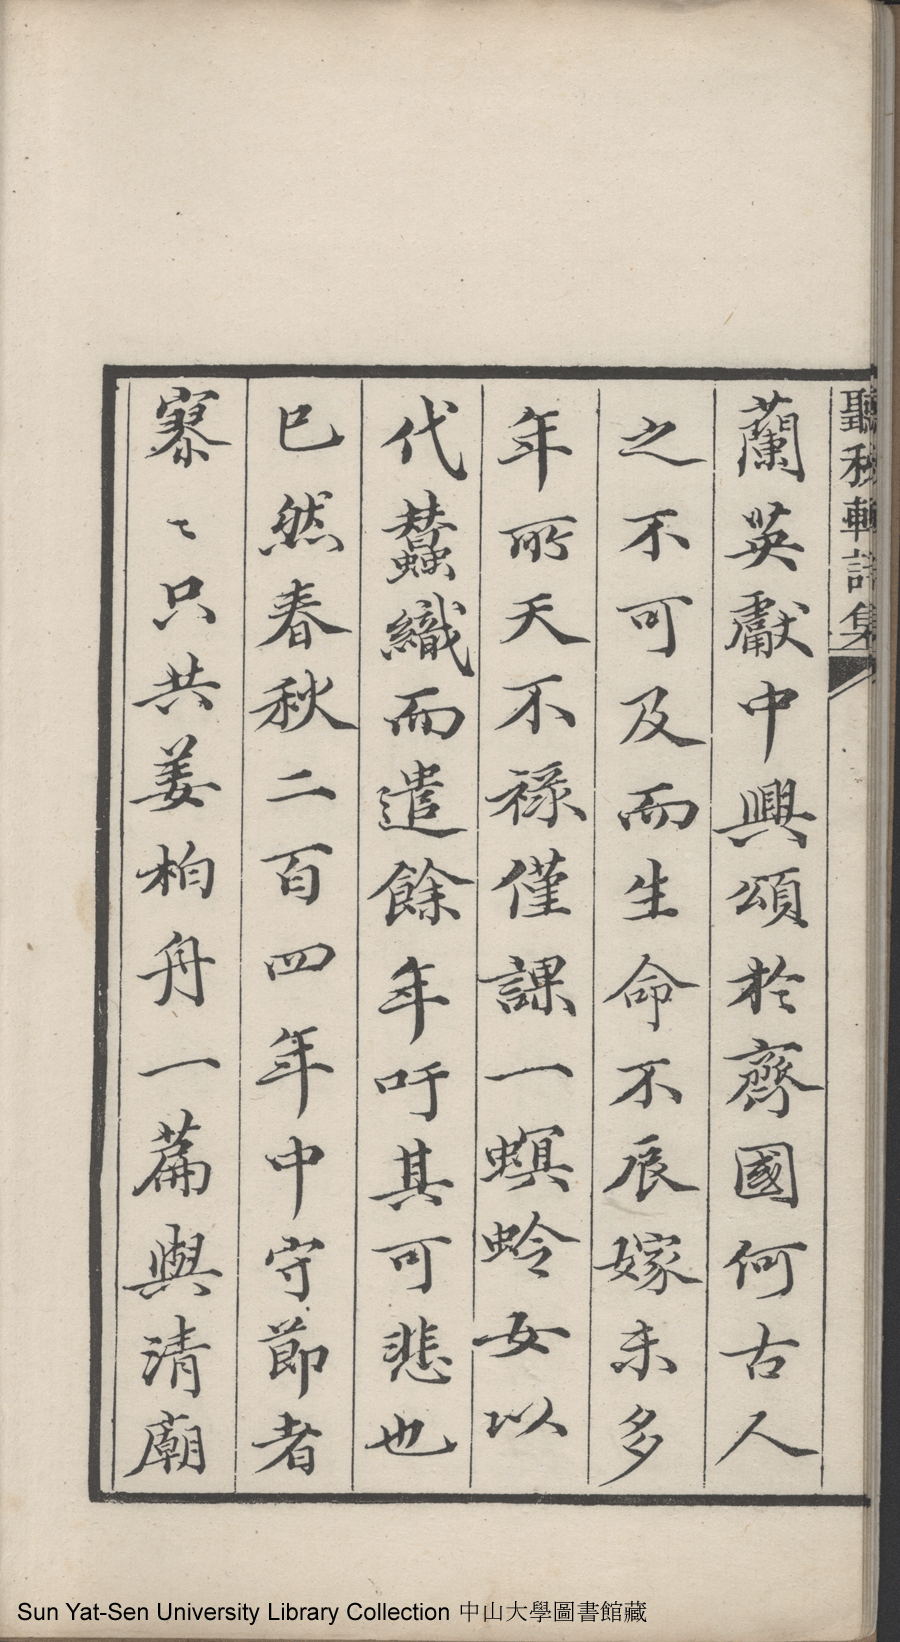 聽秋軒詩集
蘭英獻中興頌於齊國何古人
之不可及而生命不辰嫁未多
年所天不祿僅課一螟蛉女以
代蠶織而遣餘年吁其可悲也
已然春秋二百四年中守節者
寥〻只共姜柏舟一篇與清廟
Sun Yat-Sen University Library Collection 中山大學圖書館藏